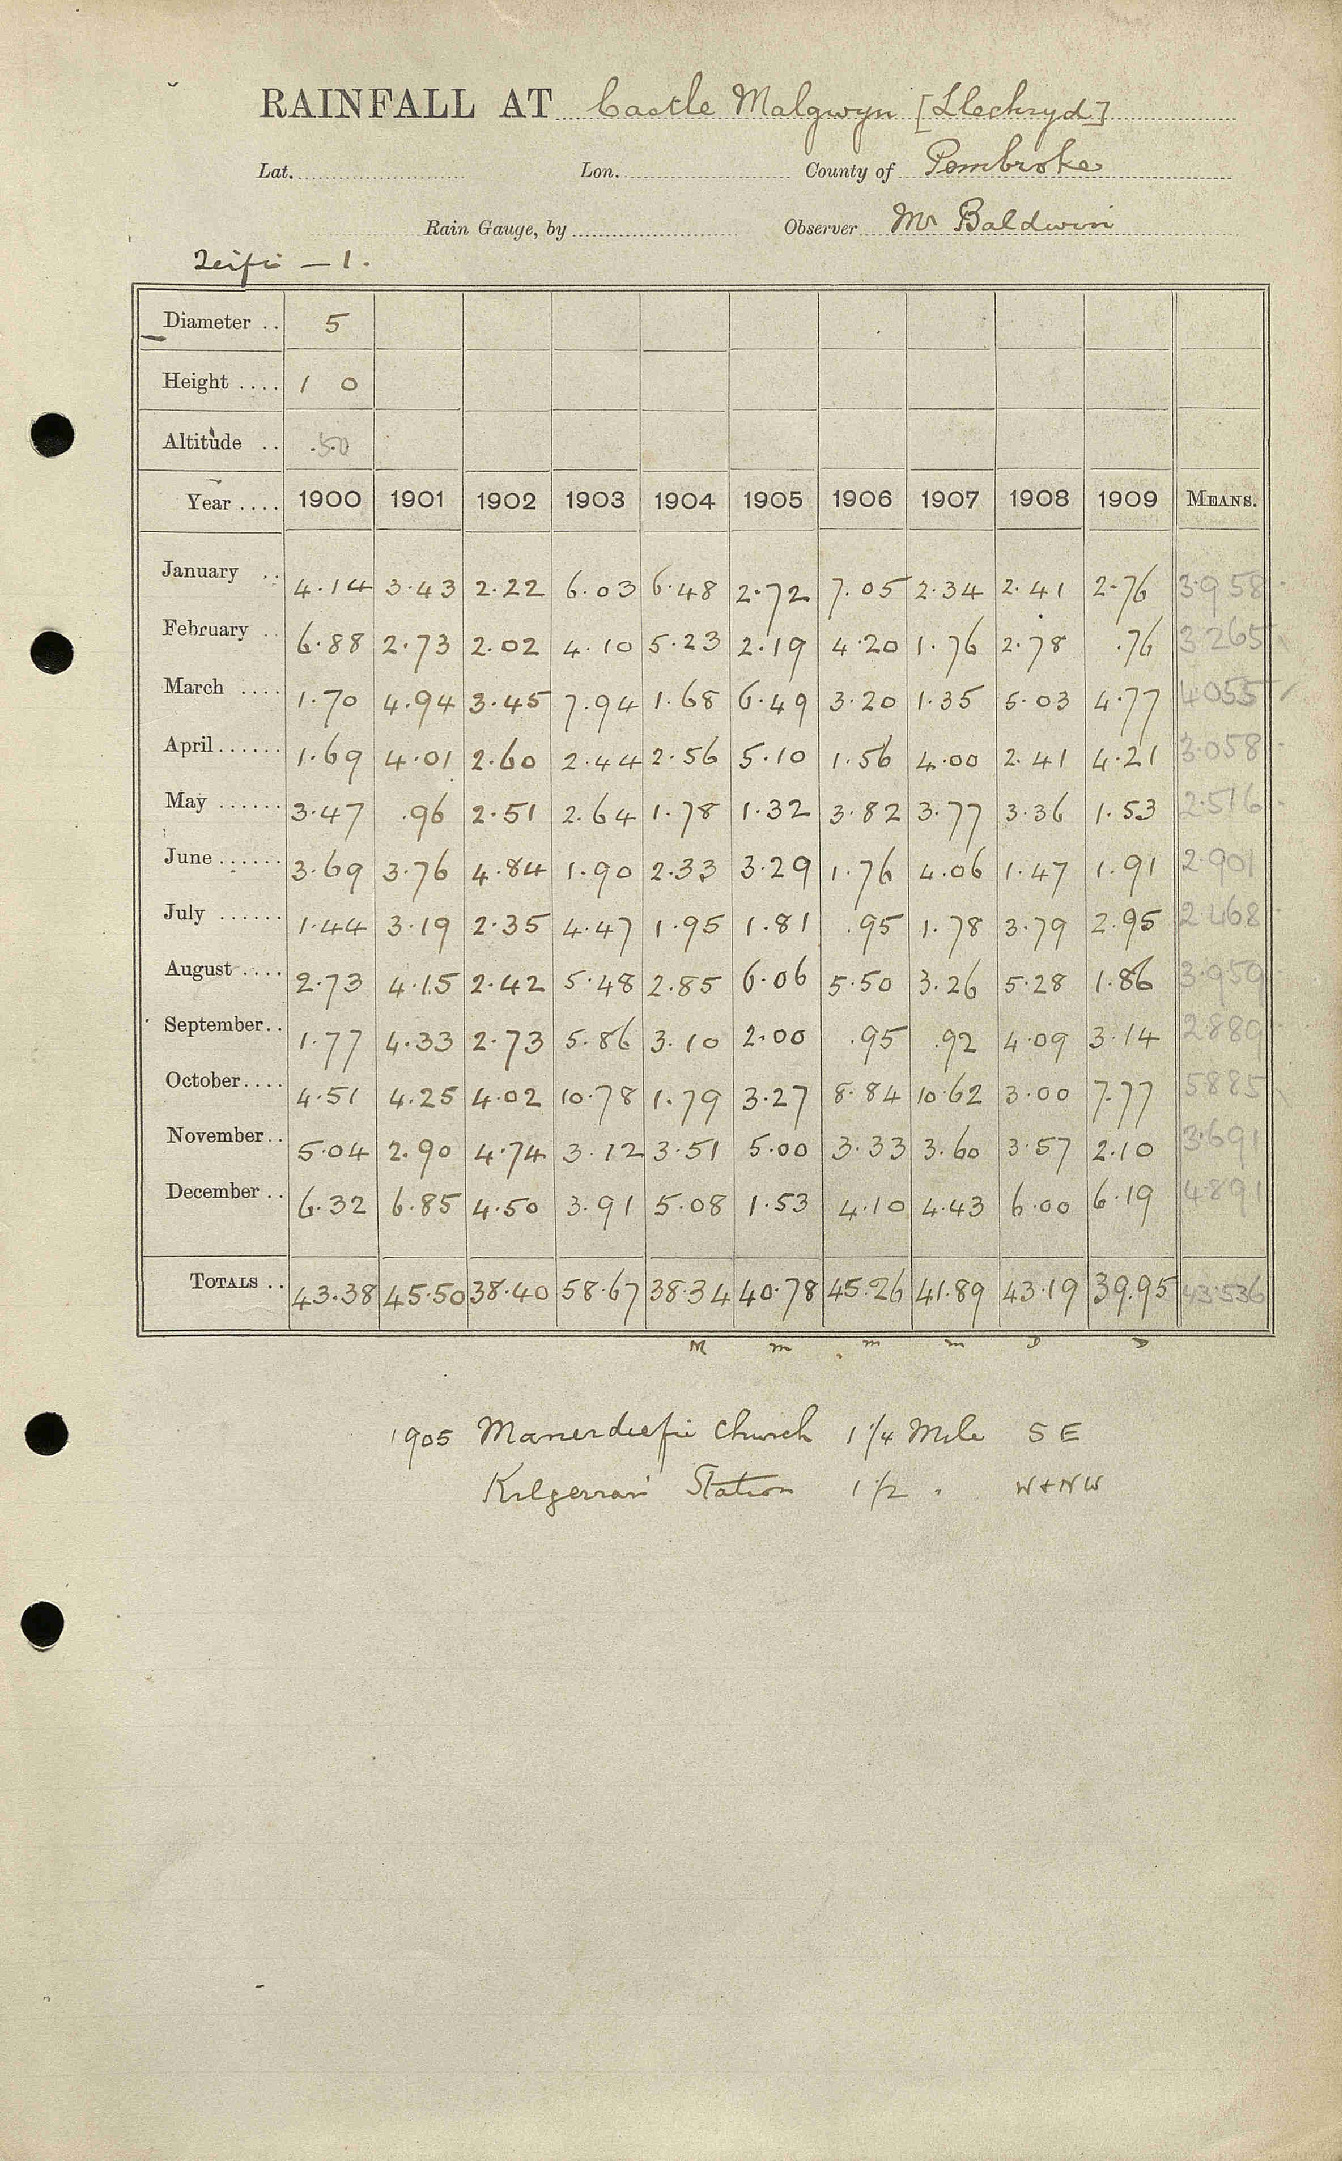 RAINFALL AT Castle Malgwyn [Llechryd]
Lat. Lon. County of Pembroke
Rain Gauge, by Observer Mr Baldwin
Teifi — 1.
Diameter .. 5
Height .... 1 0
Altitude .. 50
Year .... 1900 1901 1902 1903 1904 1905 1906 1907 1908 1909 MEANS.
January .. 4.14 3.43 2.22 6.03 6.48 2.72 7.05 2.34 2.41 2.76 3.958
February .. 6.88 2.73 2.02 4.10 5.23 2.19 4.20 1.76 2.78 .76 3265
March .... 1.70 4.94 3.45 7.94 1.68 6.49 3.20 1.35 5.03 4.77 4.055
April ...... 1.69 4.01 2.60 2.44 2.56 5.10 1.56 4.00 2.41 4.21 3.058
May ...... 3.47 .96 2.51 2.64 1.78 1.32 3.82 3.77 3.36 1.53 2.516
June ...... 3.69 3.76 4.84 1.90 2.33 3.29 1.76 4.06 1.47 1.91 2.901
July ...... 1.44 3.19 2.35 4.47 1.95 1.81 .95 1.78 3.79 2.95 2.468
August .... 2.73 4.15 2.42 5.48 2.85 6.06 5.50 3.26 5.28 1.86 3.959
September .. 1.77 4.33 2.73 5.86 3.10 2.00 .95 .92 4.09 3.14 2.889
October .... 4.51 4.25 4.02 10.78 1.79 3.27 8.84 10.62 3.00 7.77 5885
November .. 5.04 2.90 4.74 3.12 3.51 5.00 3.33 3.60 3.57 2.10 3.691
December .. 6.32 6.85 4.50 3.91 5.08 1.53 4.10 4.43 6.00 6.19 4.891
TOTALS .. 43.38 45.50 38.40 58.67 38.34 40.78 45.26 41.89 43.19 39.95 43.536
M m m m D D
1905 Manerdiefi Church 1 1/4 Mile S E
Kilgerran Station 1 1/2 . W+NW